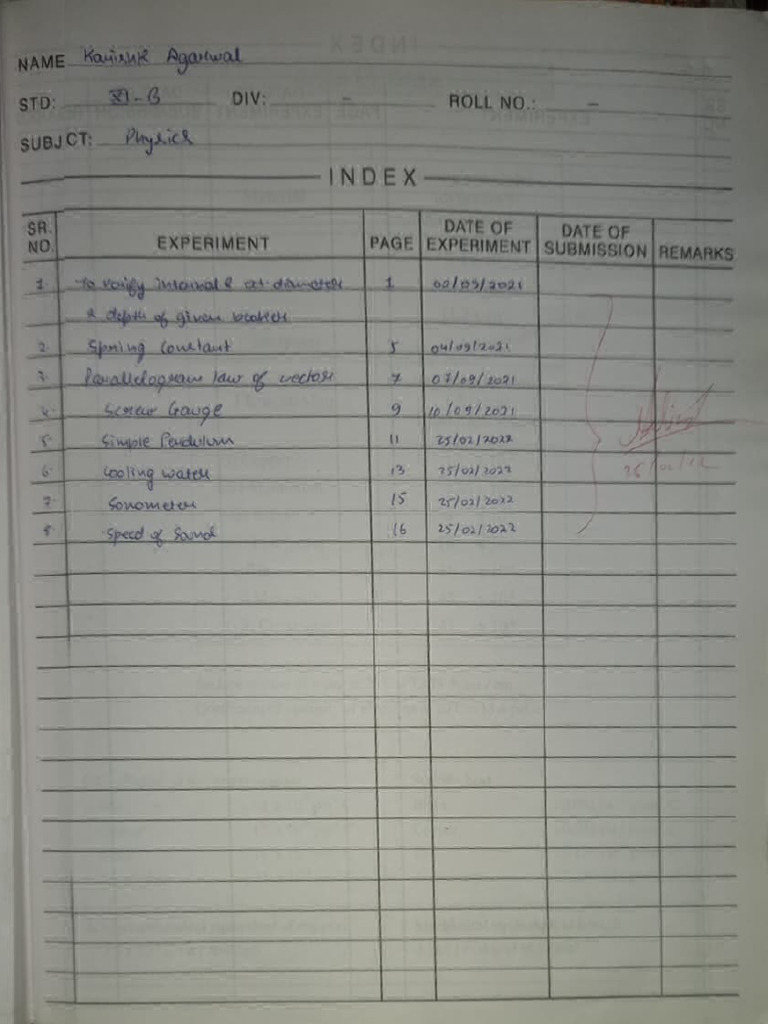 NAME Kanishk Agarwal
STD: XI-B DIV: - ROLL NO.: -
SUBJCT: Physics
INDEX
SR. NO. EXPERIMENT PAGE DATE OF EXPERIMENT DATE OF SUBMISSION REMARKS
1. To verify internal & ext. diameter 1 02/09/2021
& depth of given beaker
2. Spring Constant 5 04/09/2021
3. Parallelogram law of vectors 7 07/09/2021
4. Screw Gauge 9 10/09/2021
5. Simple Pendulum 11 25/02/2022
6. Cooling water 13 25/02/2022
7. Sonometer 15 25/02/2022
8. Speed of Sound 16 25/02/2022